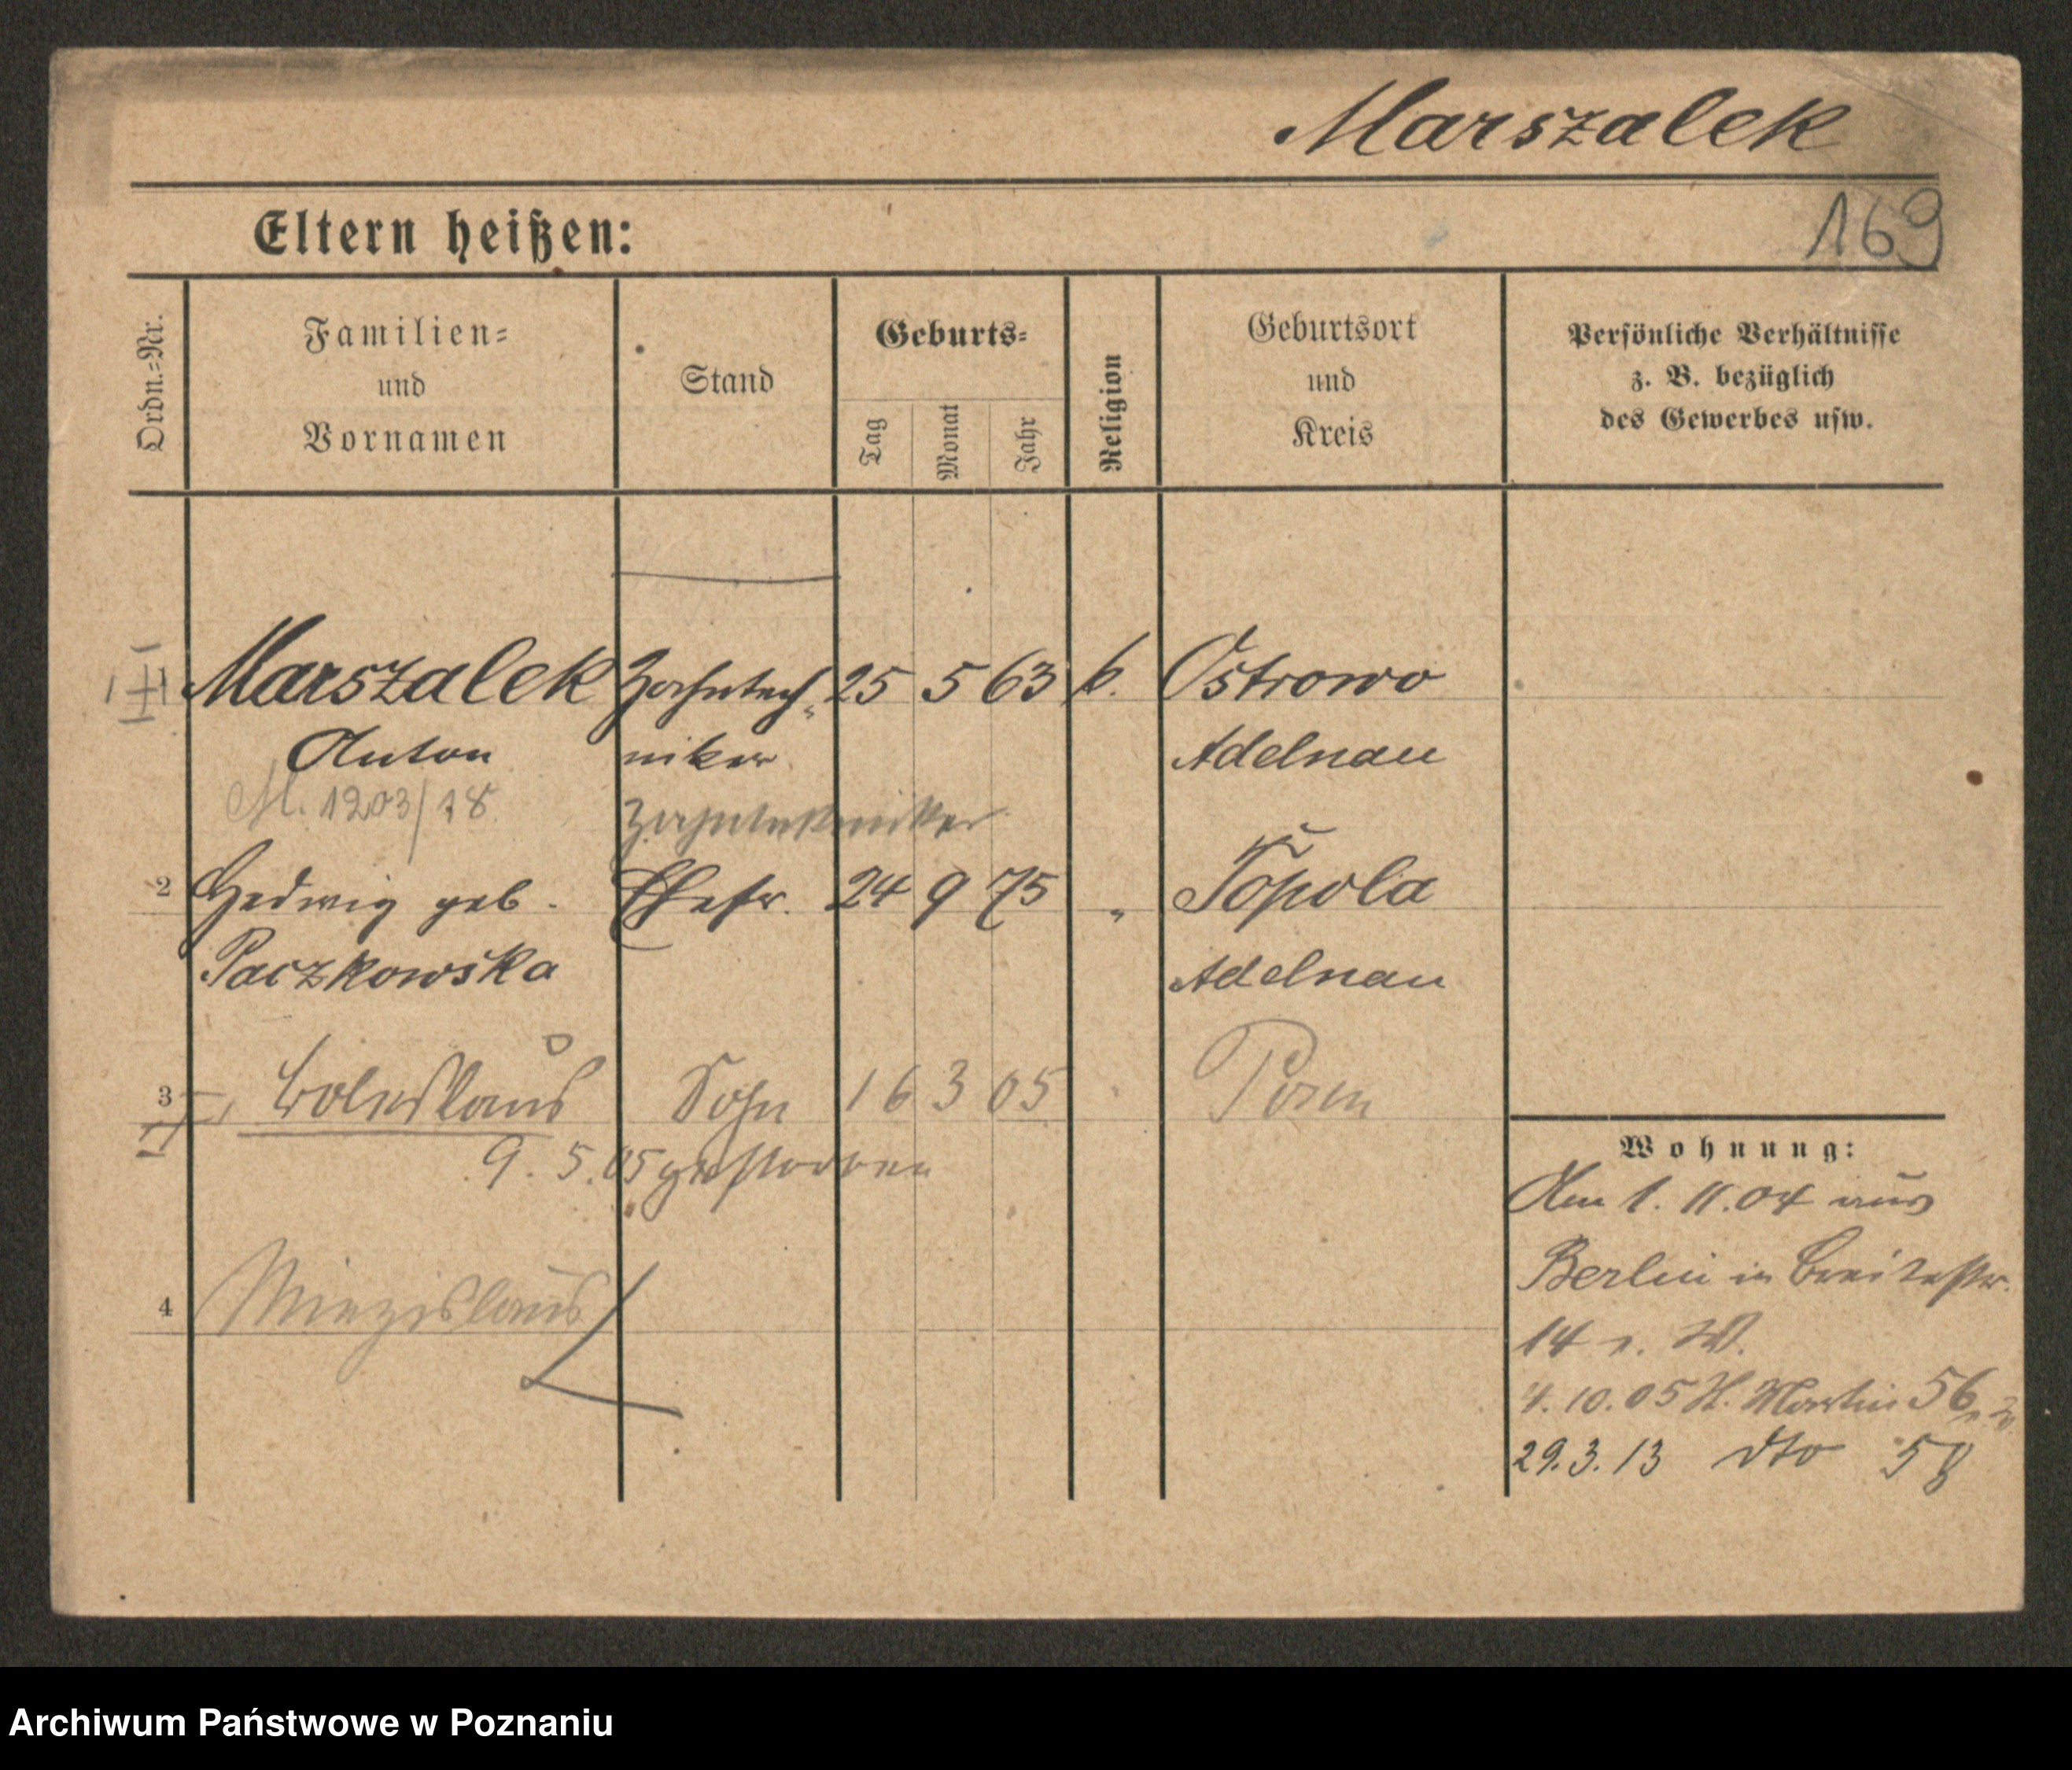 Marszalek
169
Eltern heißen:
Ordn.=Nr.
Familien=
und
Vornamen
Stand
Geburts=
Tag
Monat
Jahr
Religion
Geburtsort
und
Kreis
Persönliche Verhältnisse
z. B. bezüglich
des Gewerbes usw.
1 Marszalek Zahntech= 25 5 63 k. Ostrowo
Anton niker Adelnau
M. 1203/18.
2 Hedwig geb. Ehefr. 24 9 75 " Topola
Paczkowska Adelnau
3 Boleslaus Sohn 16 3 05 Posen
9. 5. 05 gestorben
4 Miezislaus
Wohnung:
Am 1. 11. 04 aus
Berlin in Breitestr.
14 z. W.
4. 10. 05 St. Martin 56
29. 3. 13 dto 58
Archiwum Państwowe w Poznaniu